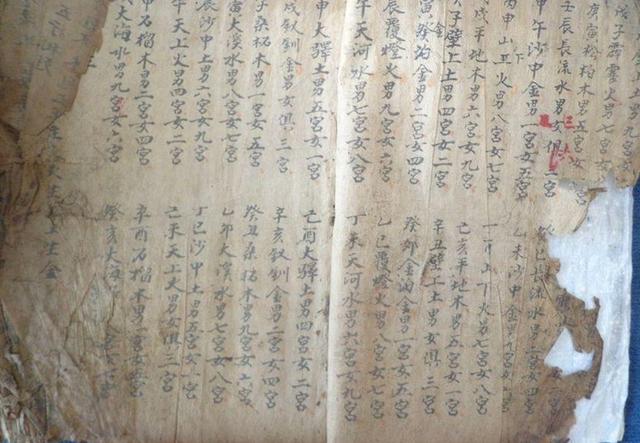 戊子霹靂火男七宮女
庚寅松柏木男二宮女四宮
壬辰長流水男女俱三宮
甲午沙中金男一宮女五宮
申山下火男八宮女七宮
戌平地木男六宮女九宮
子壁上土男四宮女二宮
寅金泊金男二宮女四宮
辰覆燈火男九宮女六宮
午天河水男七宮女八宮
申大驛土男五宮女一宮
戌釵釧金男女俱三宮
子桑柘木男一宮女五宮
大溪水男八宮女七宮
辰沙中土男六宮女九宮
午天上火男四宮女二宮
申石榴木男二宮女四宮
大海水男九宮女六宮
巳長流水男二宮女四宮
乙未沙中金男九宮女
丁酉山下火男七宮女八宮
己亥平地木男五宮女一宮
辛丑壁上土男女俱三宮
癸卯金泊金男一宮女五宮
乙巳覆燈火男八宮女七宮
丁未天河水男六宮女九宮
己酉大驛土男四宮女二宮
辛亥釵釧金男二宮女四宮
癸丑桑柘木男九宮女六宮
乙卯大溪水男七宮女八宮
丁巳沙中土男五宮女一宮
己未天上火男女俱三宮
辛酉石榴木男一宮女五宮
癸亥大海水